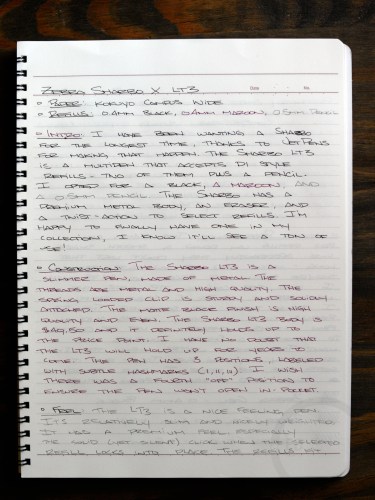 ZEBRA SHARBO X LT3
Date No.
PAPER: KOKUYO CAMPUS WIDE
REFILLS: 0.4MM BLACK, 0.4MM MAROON, 0.5MM PENCIL
INTRO: I HAVE BEEN WANTING A SHARBO
FOR THE LONGEST TIME, THANKS TO JETPENS
FOR MAKING THAT HAPPEN. THE SHARBO LT3
IS A MULTIPEN THAT ACCEPTS D1 STYLE
REFILLS - TWO OF THEM PLUS A PENCIL.
I OPTED FOR A BLACK, A MAROON, AND
A 0.5MM PENCIL. THE SHARBO HAS A
PREMIUM METAL BODY, AN ERASER, AND
A TWIST-ACTION TO SELECT REFILLS. I'M
HAPPY TO FINALLY HAVE ONE IN MY
COLLECTION, I KNOW IT'LL SEE A TON OF
USE!
CONSTRUCTION: THE SHARBO LT3 IS A
SLIMMER PEN, MADE OF METAL. THE
THREADS ARE METAL AND HIGH QUALITY. THE
SPRING LOADED CLIP IS STURDY AND SOLIDLY
ATTACHED. THE MATTE BLACK FINISH IS HIGH
QUALITY AND EVEN. THE SHARBO LT3 BODY IS
$49.50 AND IT DEFINITELY HOLDS UP TO
THE PRICE POINT. I HAVE NO DOUBT THAT
THE LT3 WILL HOLD UP FOR YEARS TO
COME. THE PEN HAS 3 POSITIONS, LABELED
WITH SUBTLE HASHMARKS (I, II, III). I WISH
THERE WAS A FOURTH "OFF" POSITION TO
ENSURE THE PEN WON'T OPEN IN-POCKET.
FEEL: THE LT3 IS A NICE FEELING PEN.
IT'S RELATIVELY SLIM AND NICELY WEIGHTED.
IT HAS A PREMIUM FEEL ESPECIALLY
THE SOLID (YET SILENT) CLICK WHEN THE SELECTED
REFILL LOCKS INTO PLACE. THE REFILLS